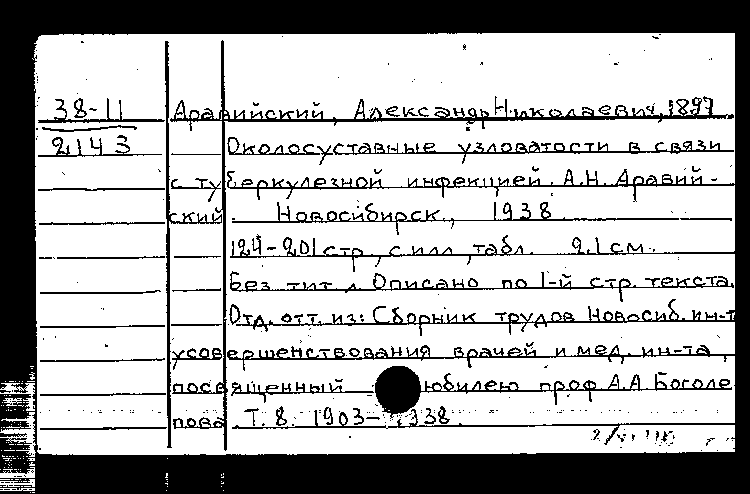 38-11 Аравийский, Александр Николаевич, 1897
2143 Околосуставные узловатости в связи
с туберкулезной инфекцией. А.Н. Аравий-
ский. Новосибирск, 1938.
124-201 стр., с илл., табл. 21 см.
Без тит. л. Описано по 1-й стр. текста.
Отд. отт. из: Сборник трудов Новосиб. ин-т
усовершенствования врачей и мед. ин-та,
посвященный юбилею проф. А.А. Боголе
пова. Т. 8. 1903-1938.